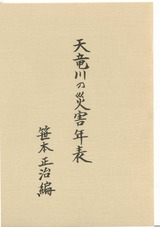 天竜川の災害年表
笹本正治編